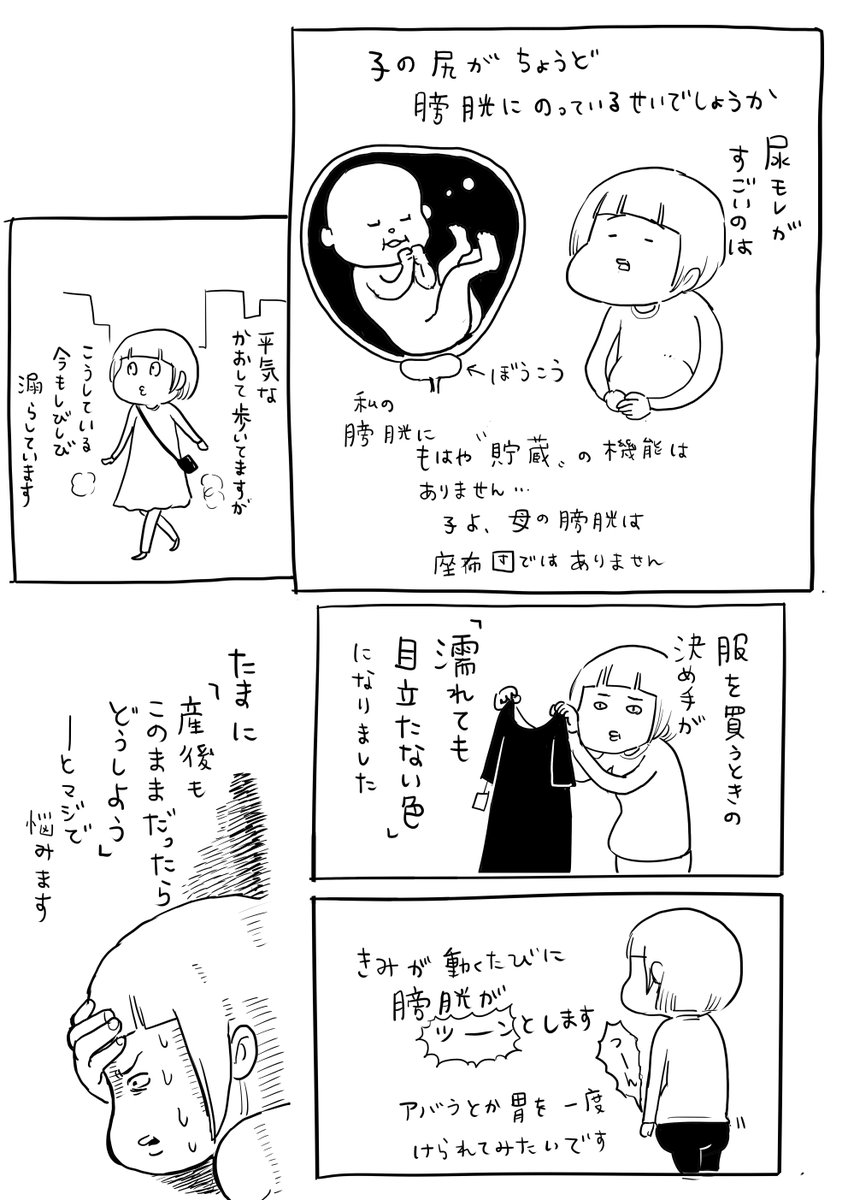 尿モレが
すごいのは
子の尻がちょうど
膀胱にのっているせいでしょうか
←ぼうこう
私の
膀胱に
もはや〝貯蔵〟の機能は
ありません…
子よ、母の膀胱は
座布団ではありません
平気な
かおして歩いてますが
こうしている
今もしびしび
漏らしています
服を買うときの
決め手が
「濡れても
目立たない色」
になりました
きみが動くたびに
膀胱が
ツーンとします
つーん
アバラとか胃を一度
けられてみたいです
たまに
「産後も
このままだったら
どうしよう」
―とマジで
悩みます